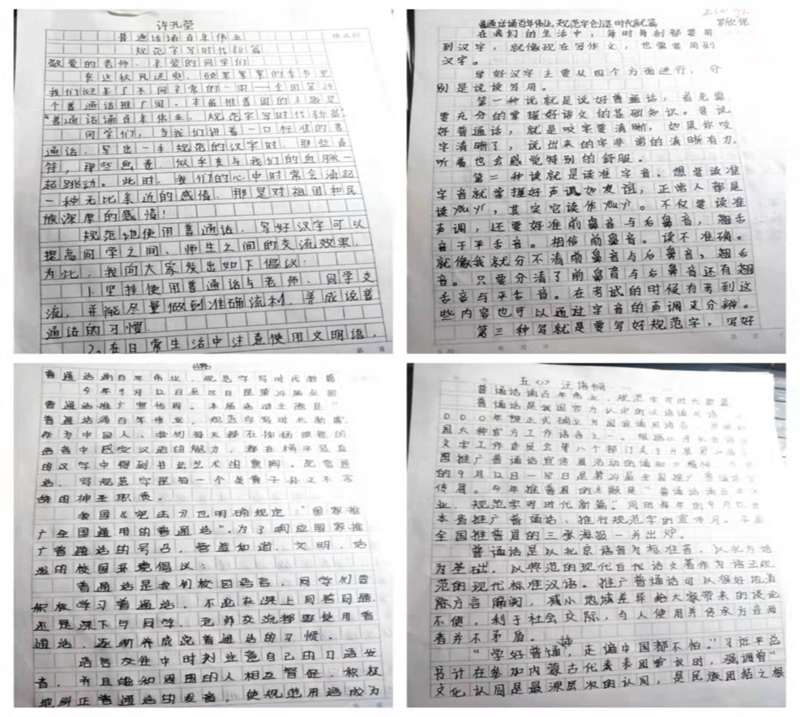 许孔莹
普通话诵百年伟业
规范字写时代新篇
敬爱的老师,亲爱的同学们:
在这秋风送爽,硕果累累的季节里
我们迎来了不同寻常的一周——全国第24
个普通话推广周,本届推普周的主题是
“普通话诵百年伟业,规范字写时代新篇”
同学们,当我们讲着一口标准的普
通话,写出一手规范的汉字时,那些声
音,那些画面,似乎都与我们的血脉一
起跳动。此时,我们的心中时常会涌起
一种无比亲近的感情,那是对祖国和民
族深厚的感情!
规范地使用普通话,写好汉字可以
提高同学之间,师生之间的交流效果。
为此,我向大家发出如下倡议:
1.坚持使用普通话与老师、同学交
流,并能尽量做到准确流利,养成说普
通话的习惯
2.在日常生活中注意使用文明语,
普通话诵百年伟业,规范字创造时代新篇
在我们的生活中,每时每刻都要用
到汉字,就像现在写作文,也需要用到
汉字。
学好汉字主要从四个方面进行,分
别是说读写用。
第一种说就是说好普通话,首先需
要充分的掌握好语文的基础知识。要说
好普通话,就是咬字要清晰,如果你咬
字清晰了,说出来的字非常的清晰有力,
听着也会感觉特别的舒服。
第二种读就是读准字音。想要读准
字音就掌握好声调
声调,还要好准前鼻音与后鼻音,翘舌
音于平舌音。相信前鼻音。读不准确。
就像我就分不清前鼻音与后鼻音,翘舌
音。只要分清了前鼻音与后鼻音还有翘
舌音与平舌音。在考试的时候有考到这
些内容也可以通过字音的声调来分辨。
第三种写就是要写好规范字,写好
普通话诵百年伟业,规范字写时代新篇
今年9月12日至18日是第24届全国
普通话推广宣传周。本届活动主题是“
普通话诵百年伟业,规范字写时代新篇”
作为中国人,我们每天都在抑扬顿挫的
语音中感受汉语的魅力,都在横平竖直
的汉字中得到书法艺术的熏陶。说普通
话,写规范字是每一个炎黄子孙义不容
辞的神圣职责。
我国宪法力也明确规定,“国家推
广全国通用的普通话”。为了响应国家推
广普通话的号召,营造和谐、文明、活
泼的校园环境倡议:
普通话是我们校园语言,同学们要
积极学习普通话,不论在课上回答问题
还是课下与同学、老师交流都要使用普
通话,逐渐养成说普通话的习惯。
语言文处中时刻注意自己的口语发
音,并且能和周围的人相互督促,积极
地纠正普通话的发音,使规范用语成为
五(4) 汪语桐
普通话诵百年伟业,规范字写时代新篇
普通话是我国官方认定的汉语通用语
国六种官方工作语言之一。
的9月12日—18日是第24届全国推广普通话宣
传周。今年推普周的主题是“普通话诵百年伟
业,规范字写时代新篇。同时每年的9月也是
本省推广普通话、推行规范字的宣传月。本届
全国推普周的三张海报一并出炉。
普通话是以北京语音为标准音,以北方话
为基础,以典范的现代白话文著作为语法规
范的现代标准汉语。推广普通话可以很好地消
除方言隔阂,减小地域差异给大家带来的谈论
不便,利于社会交际,与人使用并传承方言两
者并不矛盾。
“学好普通话,走遍中国都不怕。”习近平总
书计在参加内蒙古代表团审议时,强调道“
文化认同是最深层次的认同,是民族团结之根